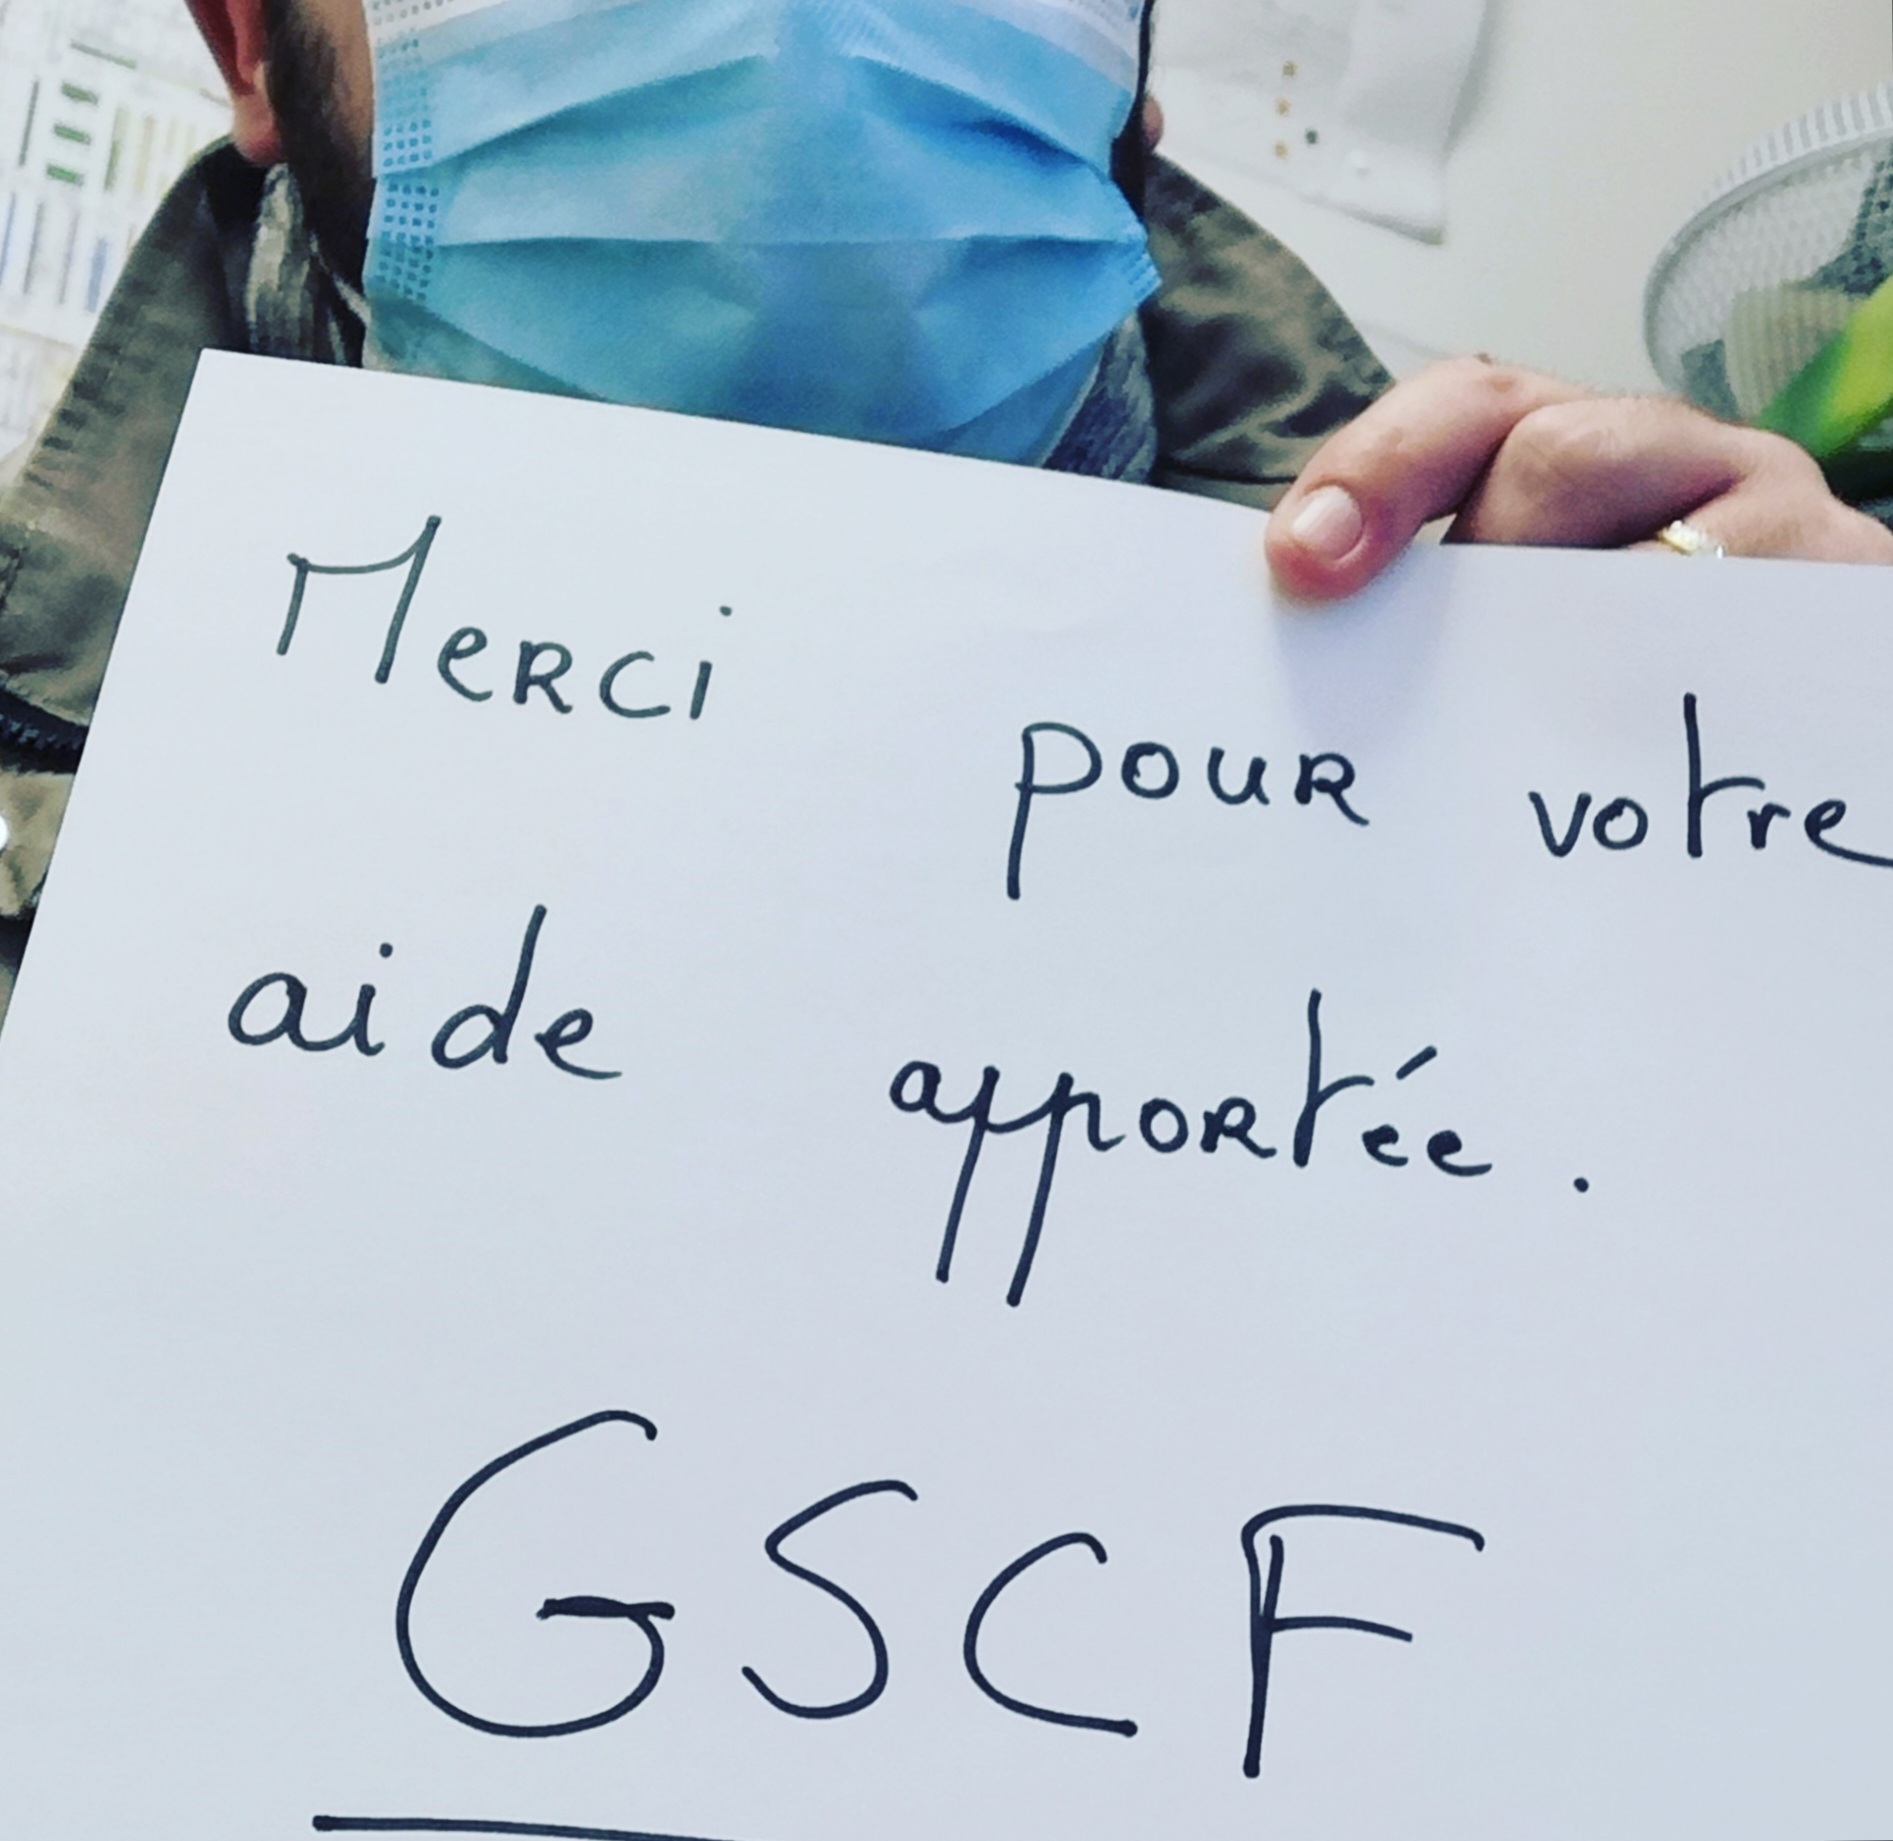 Merci pour votre
aide apportée.
GSCF